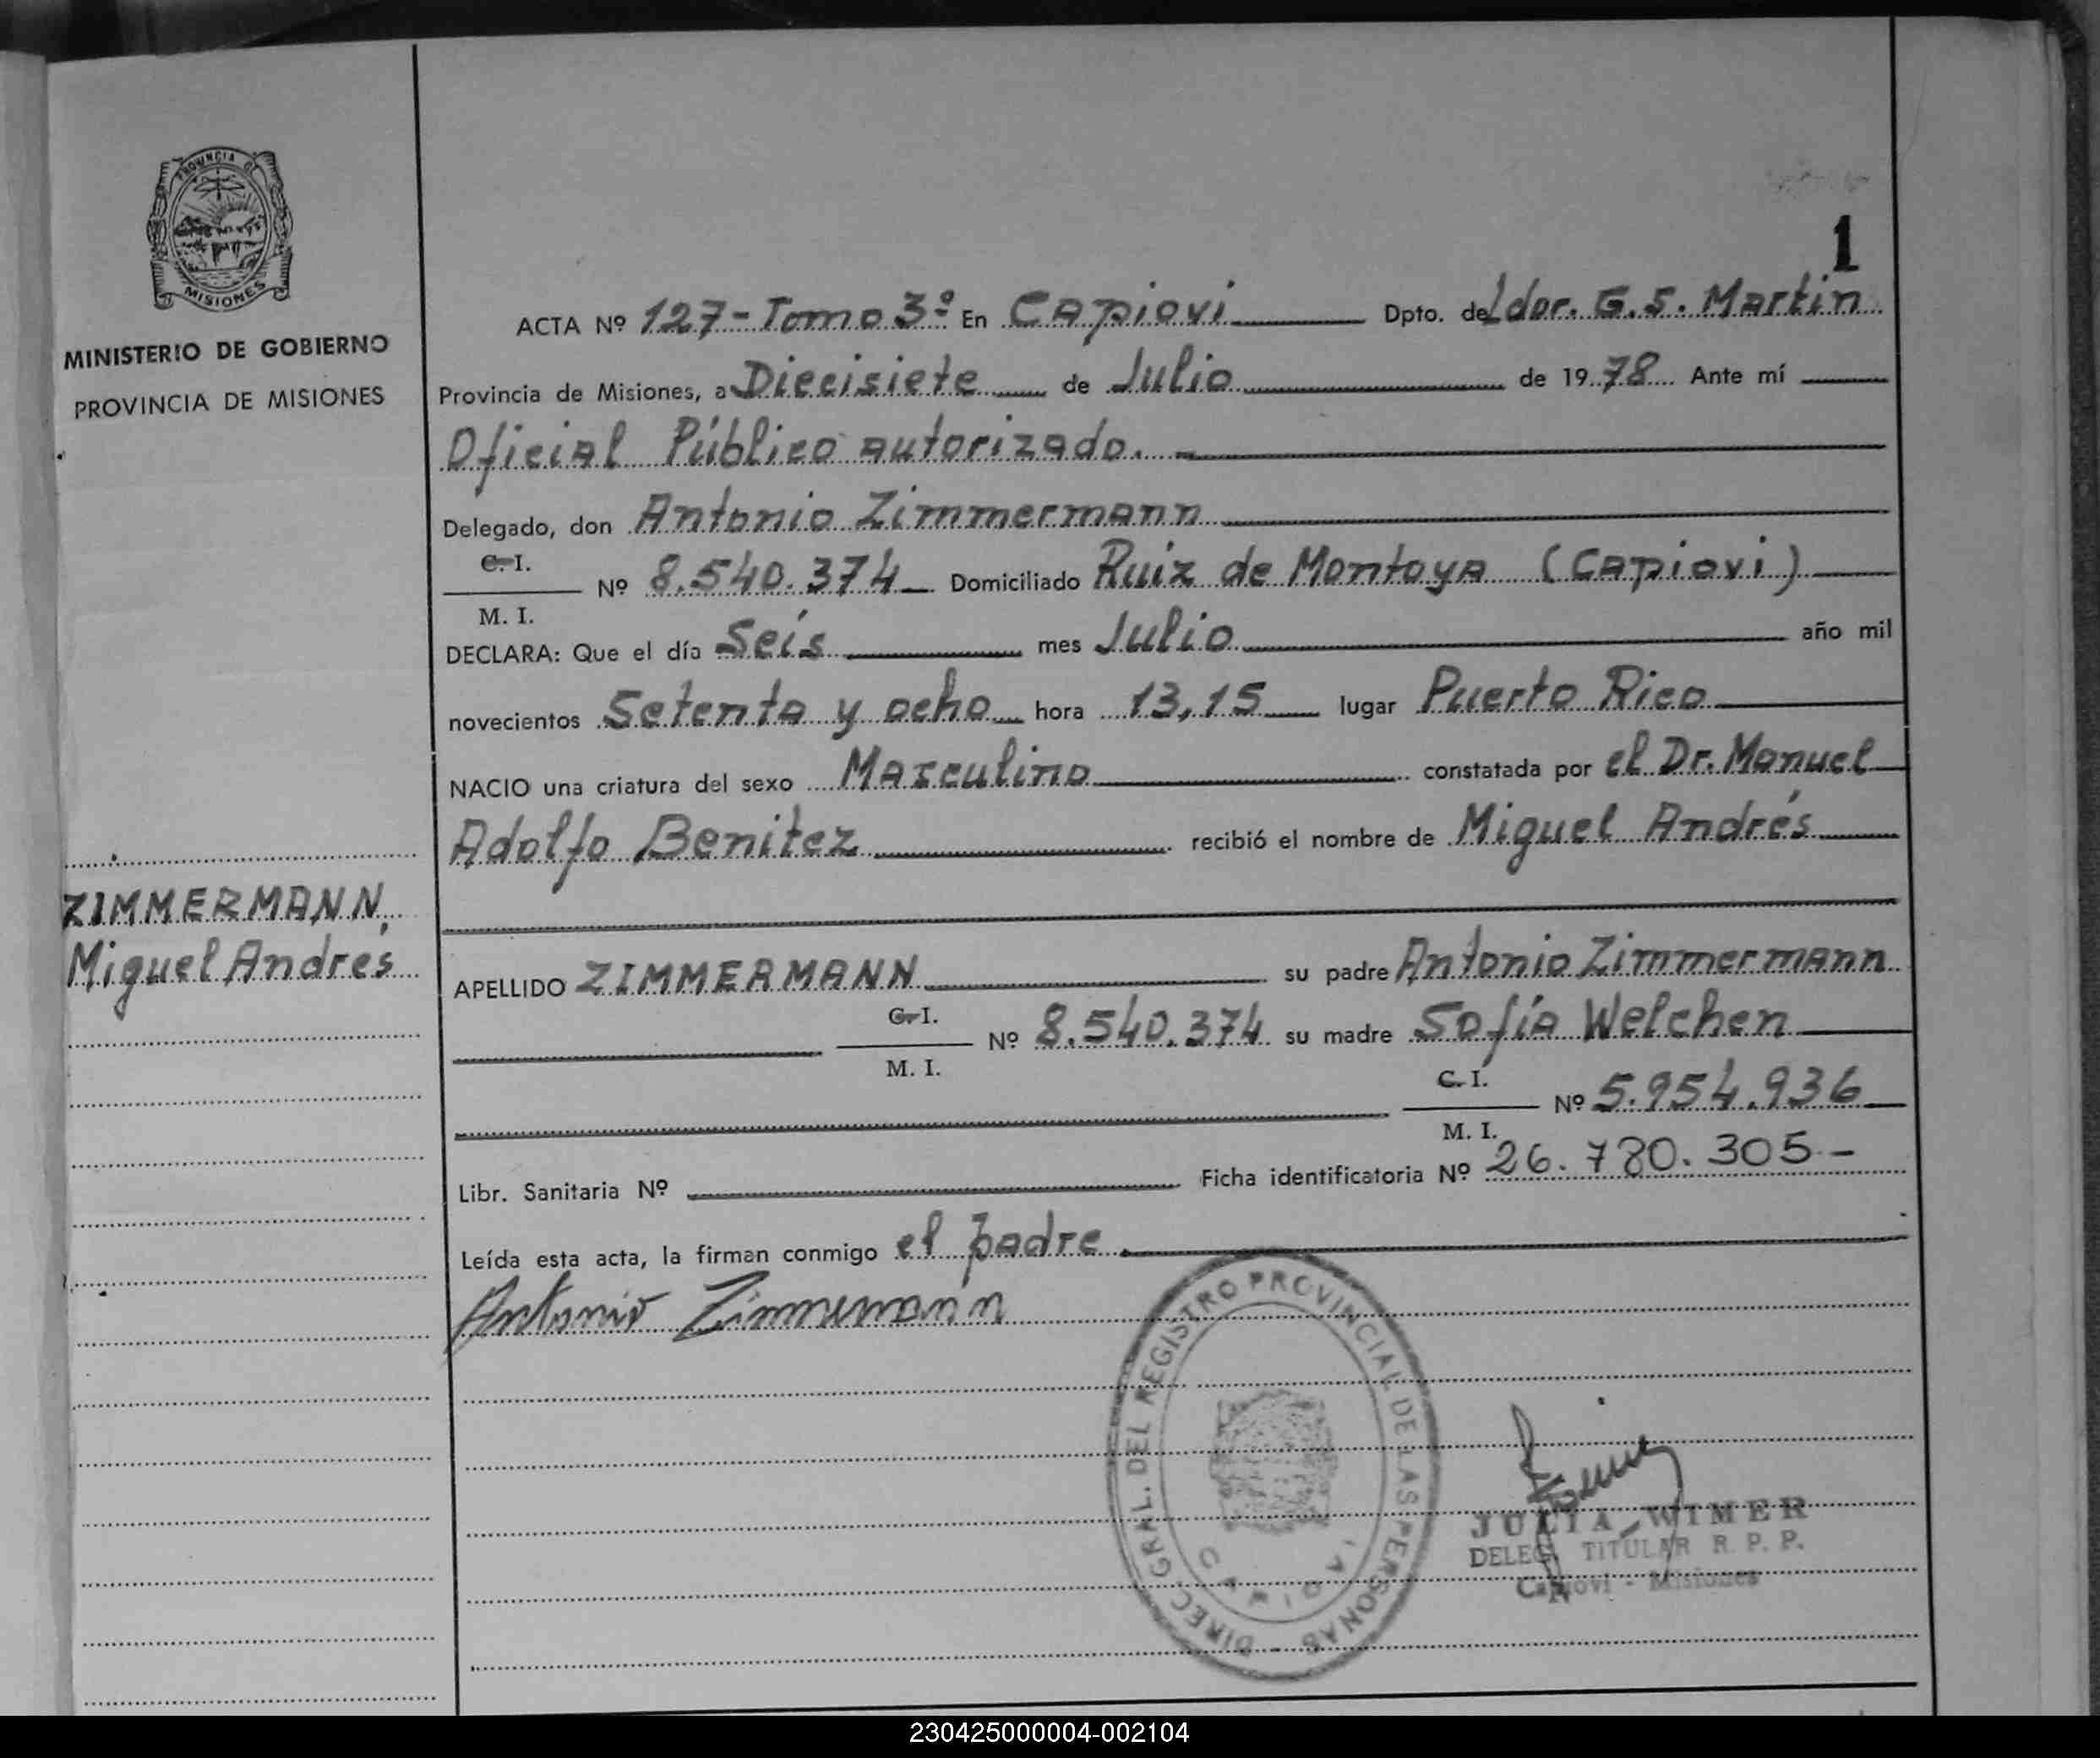 PROVINCIA DE
MISIONES
MINISTERIO DE GOBIERNO
PROVINCIA DE MISIONES
ZIMMERMANN,
Miguel Andrés
1
ACTA Nº 127-Tomo 3º En Capiovi Dpto. de Ldor. G. S. Martin
Provincia de Misiones, a Diecisiete de Julio de 1978 Ante mí
Oficial Público autorizado. -
Delegado, don Antonio Zimmermann
C. I.
Nº 8.540.374 Domiciliado Ruiz de Montoya (Capiovi)
M. I.
DECLARA: Que el día Seis mes Julio año mil
novecientos Setenta y ocho hora 13,15 lugar Puerto Rico
NACIO una criatura del sexo Masculino constatada por el Dr. Manuel
Adolfo Benitez recibió el nombre de Miguel Andrés
APELLIDO ZIMMERMANN su padre Antonio Zimmermann
C. I.
Nº 8.540.374 su madre Sofía Welchen
M. I.
C. I.
Nº 5.954.936
M. I.
Libr. Sanitaria Nº Ficha identificatoria Nº 26.780.305-
Leída esta acta, la firman conmigo el padre
Antonio Zimmermann
DIREC GRAL. DEL REGISTRO PROVINCIAL DE LAS PERSONAS
JULIA WIMER
DELEG. TITULAR R. P. P.
Capiovi - Misiones
230425000004-002104